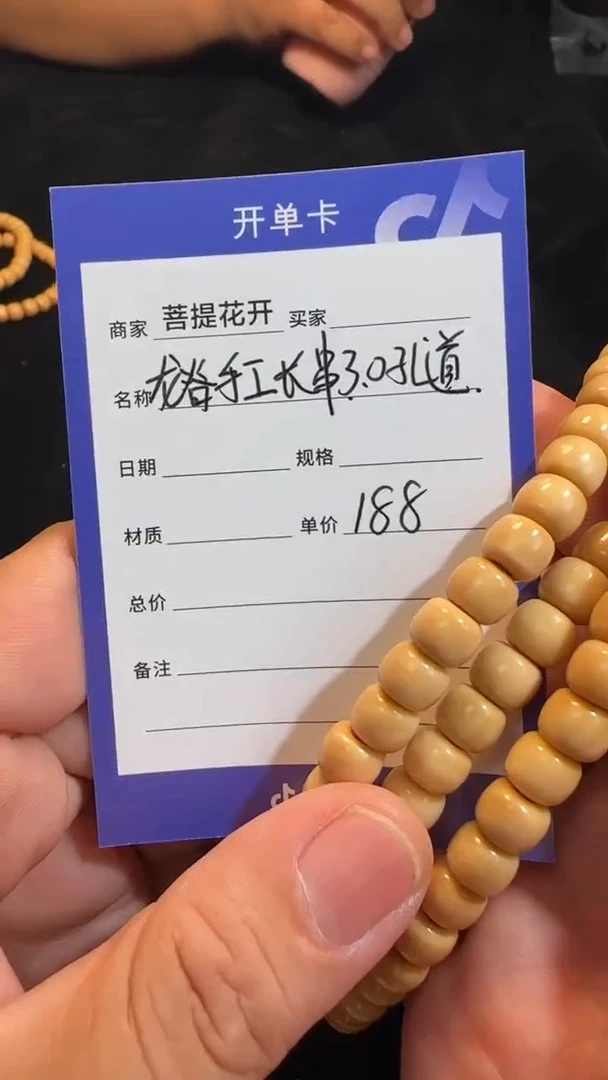 开单卡
商家 菩提花开 买家
名称 龙脊手工长串3.0孔道
日期 规格
材质 单价 188
总价
备注